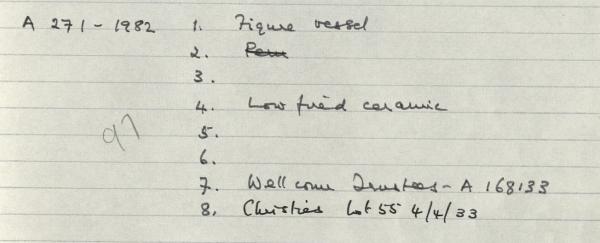 A 271-1982 1. Figure vessel
2. Peru
3.
4. Low fired ceramic
97
5.
6.
7. Wellcome Trustees - A 168133
8. Christies Lot 55 4/4/33